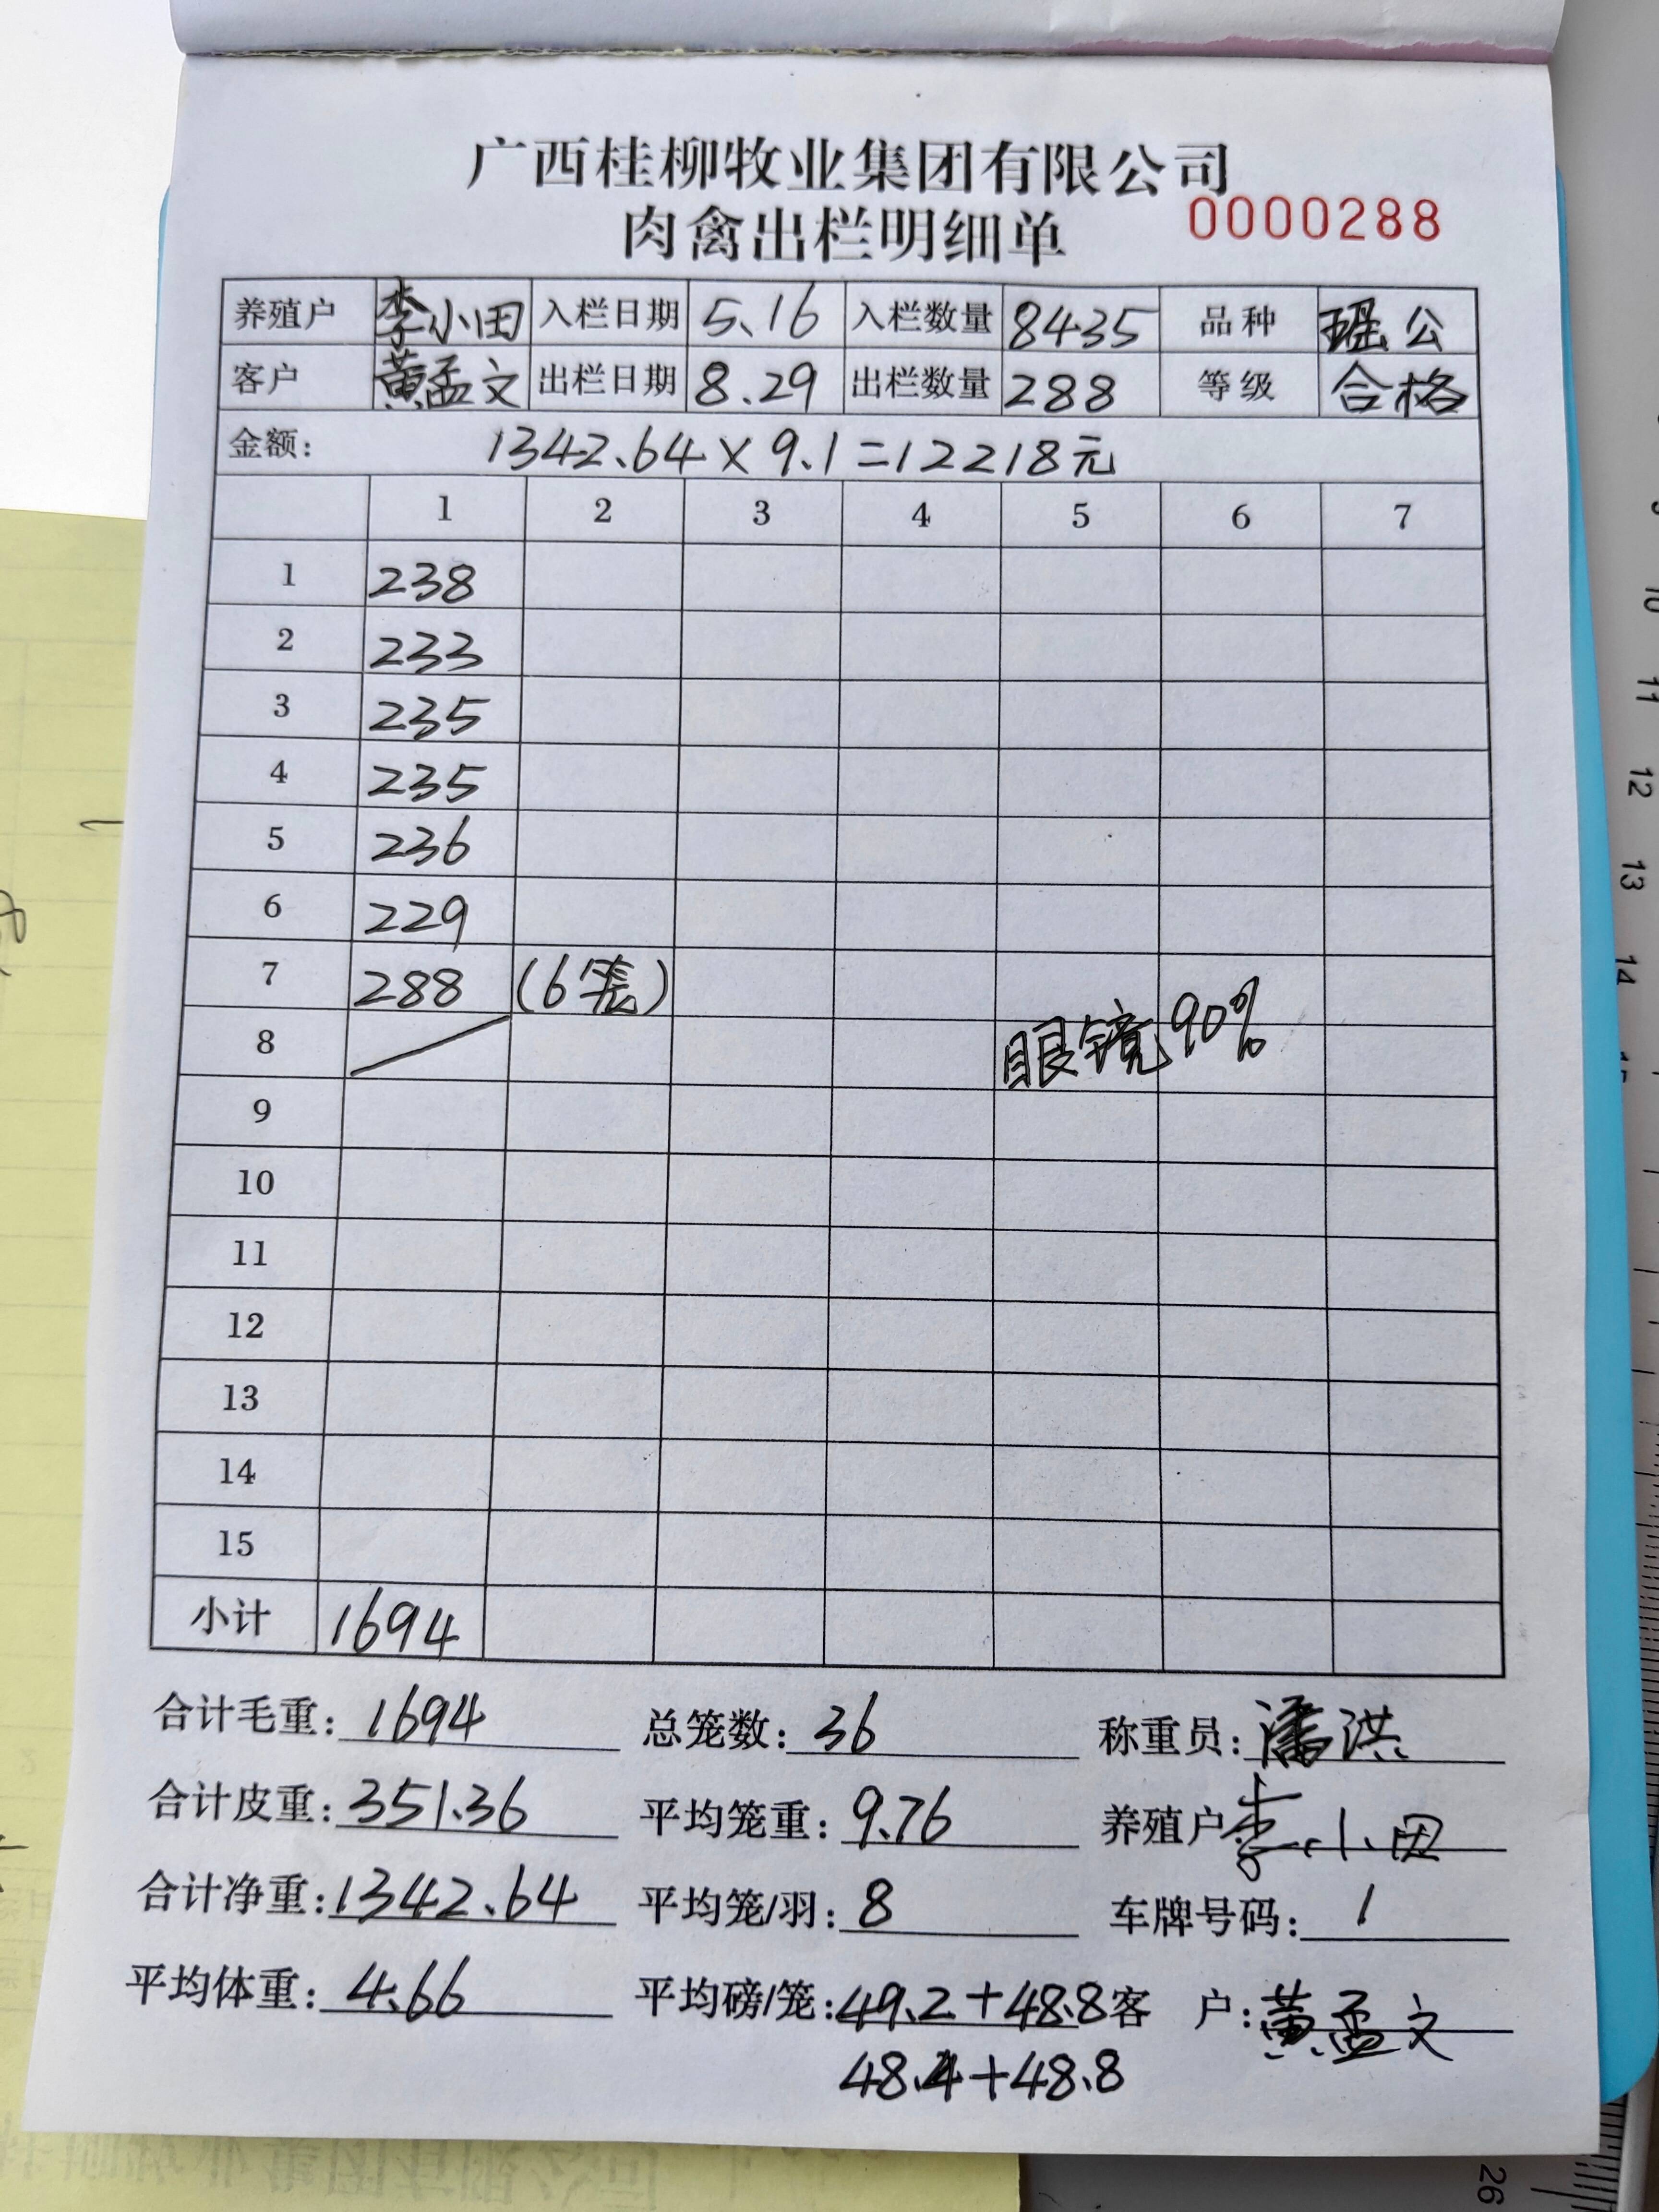 广西桂柳牧业集团有限公司
肉禽出栏明细单 0000288
养殖户 李小田 入栏日期 5.16 入栏数量 8435 品种 瑶公
客户 黄孟文 出栏日期 8.29 出栏数量 288 等级 合格
金额: 1342.64×9.1=12218元
1 2 3 4 5 6 7
1 238
2 233
3 235
4 235
5 236
6 229
7 288 (6笼)
8 眼镜90%
9
10
11
12
13
14
15
小计 1694
合计毛重: 1694 总笼数: 36 称重员: 潘洪
合计皮重: 351.36 平均笼重: 9.76 养殖户 李小田
合计净重: 1342.64 平均笼/羽: 8 车牌号码: 1
平均体重: 4.66 平均磅/笼: 49.2+48.8 客 户: 黄孟文
48.4+48.8
10
11
12
13
14
26